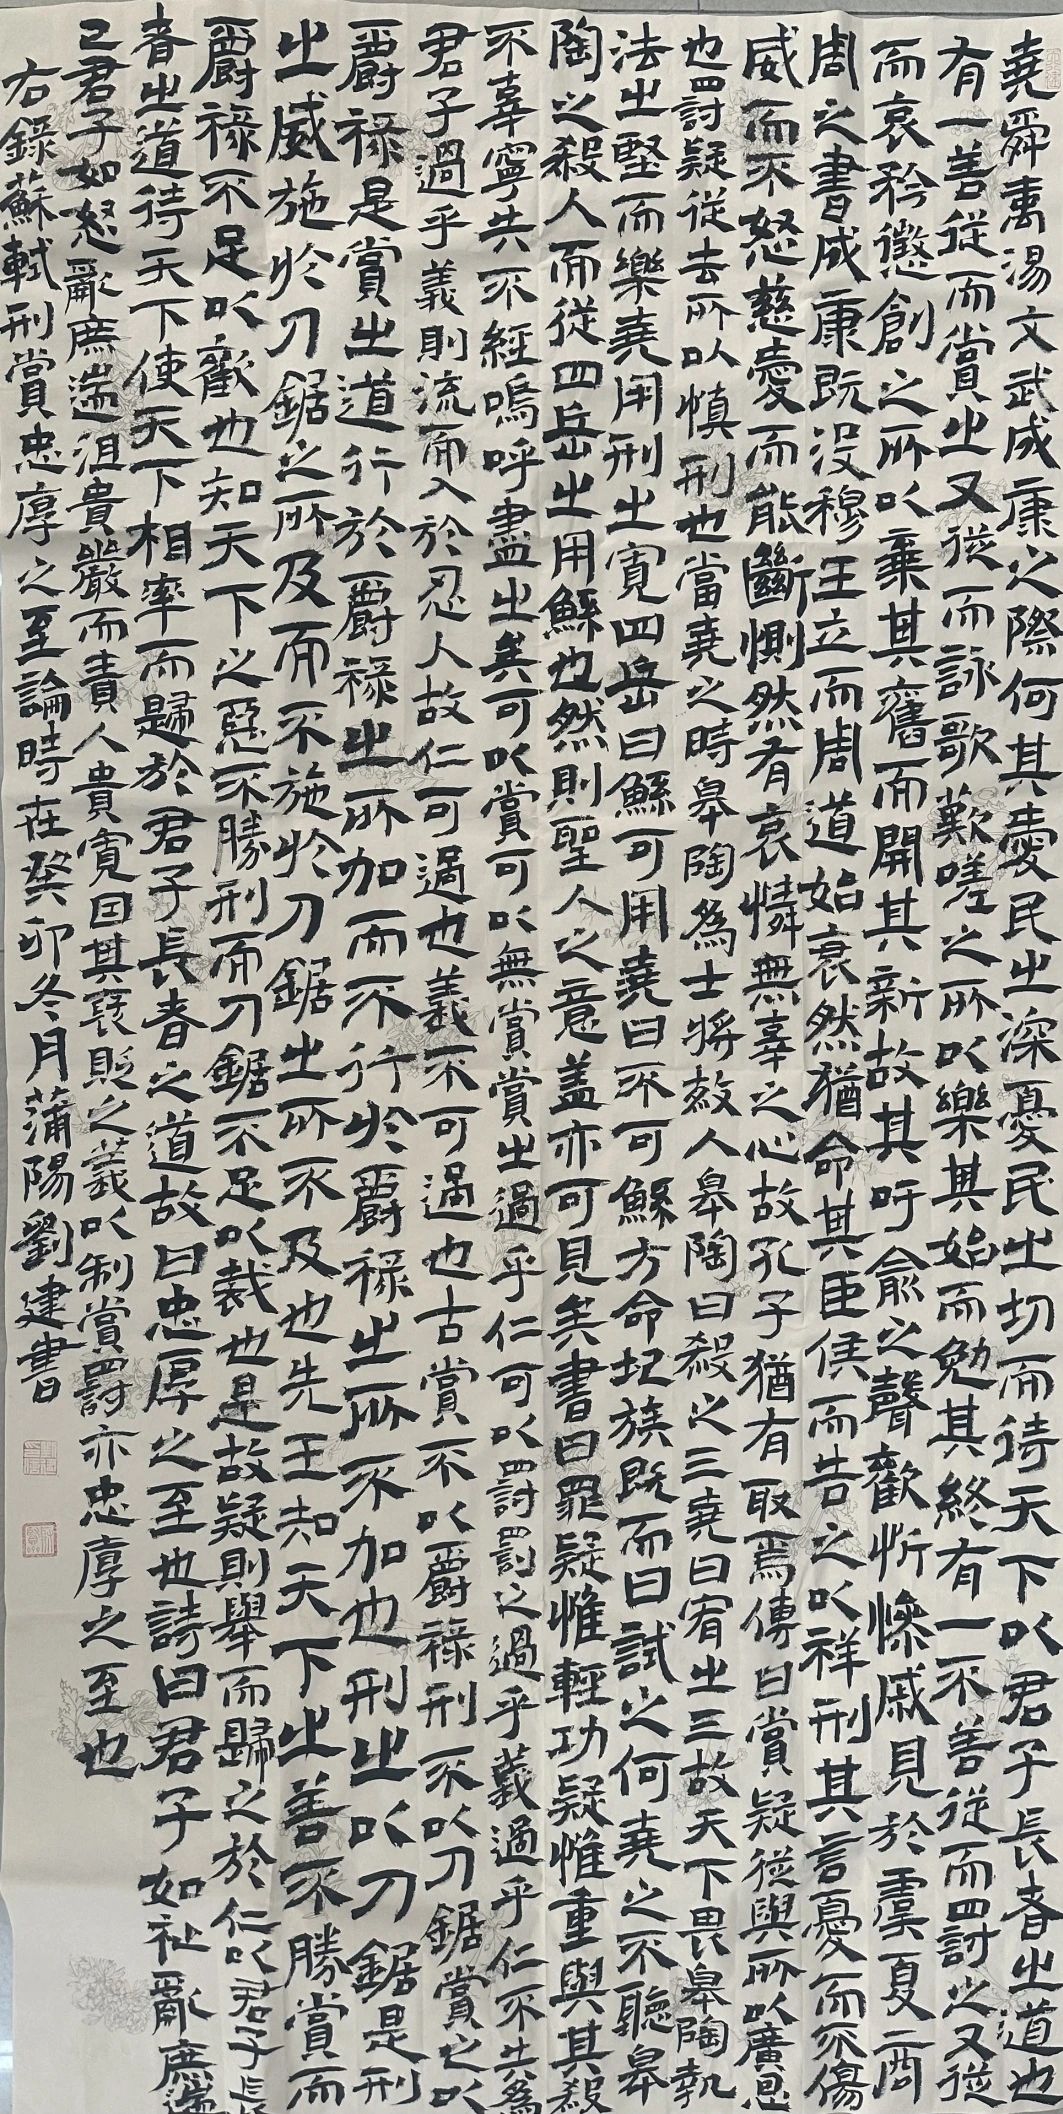 堯舜禹湯文武成康之際何其愛民之深憂民之切而待天下以君子長者之道也
有一善從而賞之又從而詠歌歎嗟之所以樂其始而勉其終有一不善從而罰之又從
而哀矜懲創之所以棄其舊而開其新故其吁俞之聲歡忻慘戚見於虞夏商
周之書成康既没穆王立而周道始衰然猶命其臣侯而告之以祥刑其言憂而不傷
威而不怒慈愛而能斷惻然有哀憐無辜之心故孔子猶有取焉傳曰賞疑從與所以廣恩
也罰疑從去所以慎刑也當堯之時皋陶為士將殺人皋陶曰殺之三堯曰宥之三故天下畏皋陶執
法之堅而樂堯用刑之寬四岳曰鯀可用堯曰不可鯀方命圮族既而曰試之何堯之不聽皋
陶之殺人而從四岳之用鯀也然則聖人之意蓋亦可見矣書曰罪疑惟輕功疑惟重與其殺
不辜寧失不經嗚呼盡之矣可以賞可以無賞賞之過乎仁可以罰罰之過乎義過乎仁不失為
君子過乎義則流而入於忍人故仁可過也義不可過也古賞不以爵祿刑不以刀鋸賞之以
爵祿是賞之道行於爵祿之所加而不行於爵祿之所不加也刑之以刀鋸是刑
之威施於刀鋸之所及而不施於刀鋸之所不及也先王知天下之善不勝賞而
爵祿不足以勸也知天下之惡不勝刑而刀鋸不足以裁也是故疑則舉而歸之於仁以君子長
者之道待天下使天下相率而歸於君子長者之道故曰忠厚之至也詩曰君子如祉亂庶遄
已君子如怒亂庶遄沮貴嚴而責人貴寬因其褒貶之義以制賞罰亦忠厚之至也
右錄蘇軾刑賞忠厚之至論時在癸卯冬月蒲陽劉建書